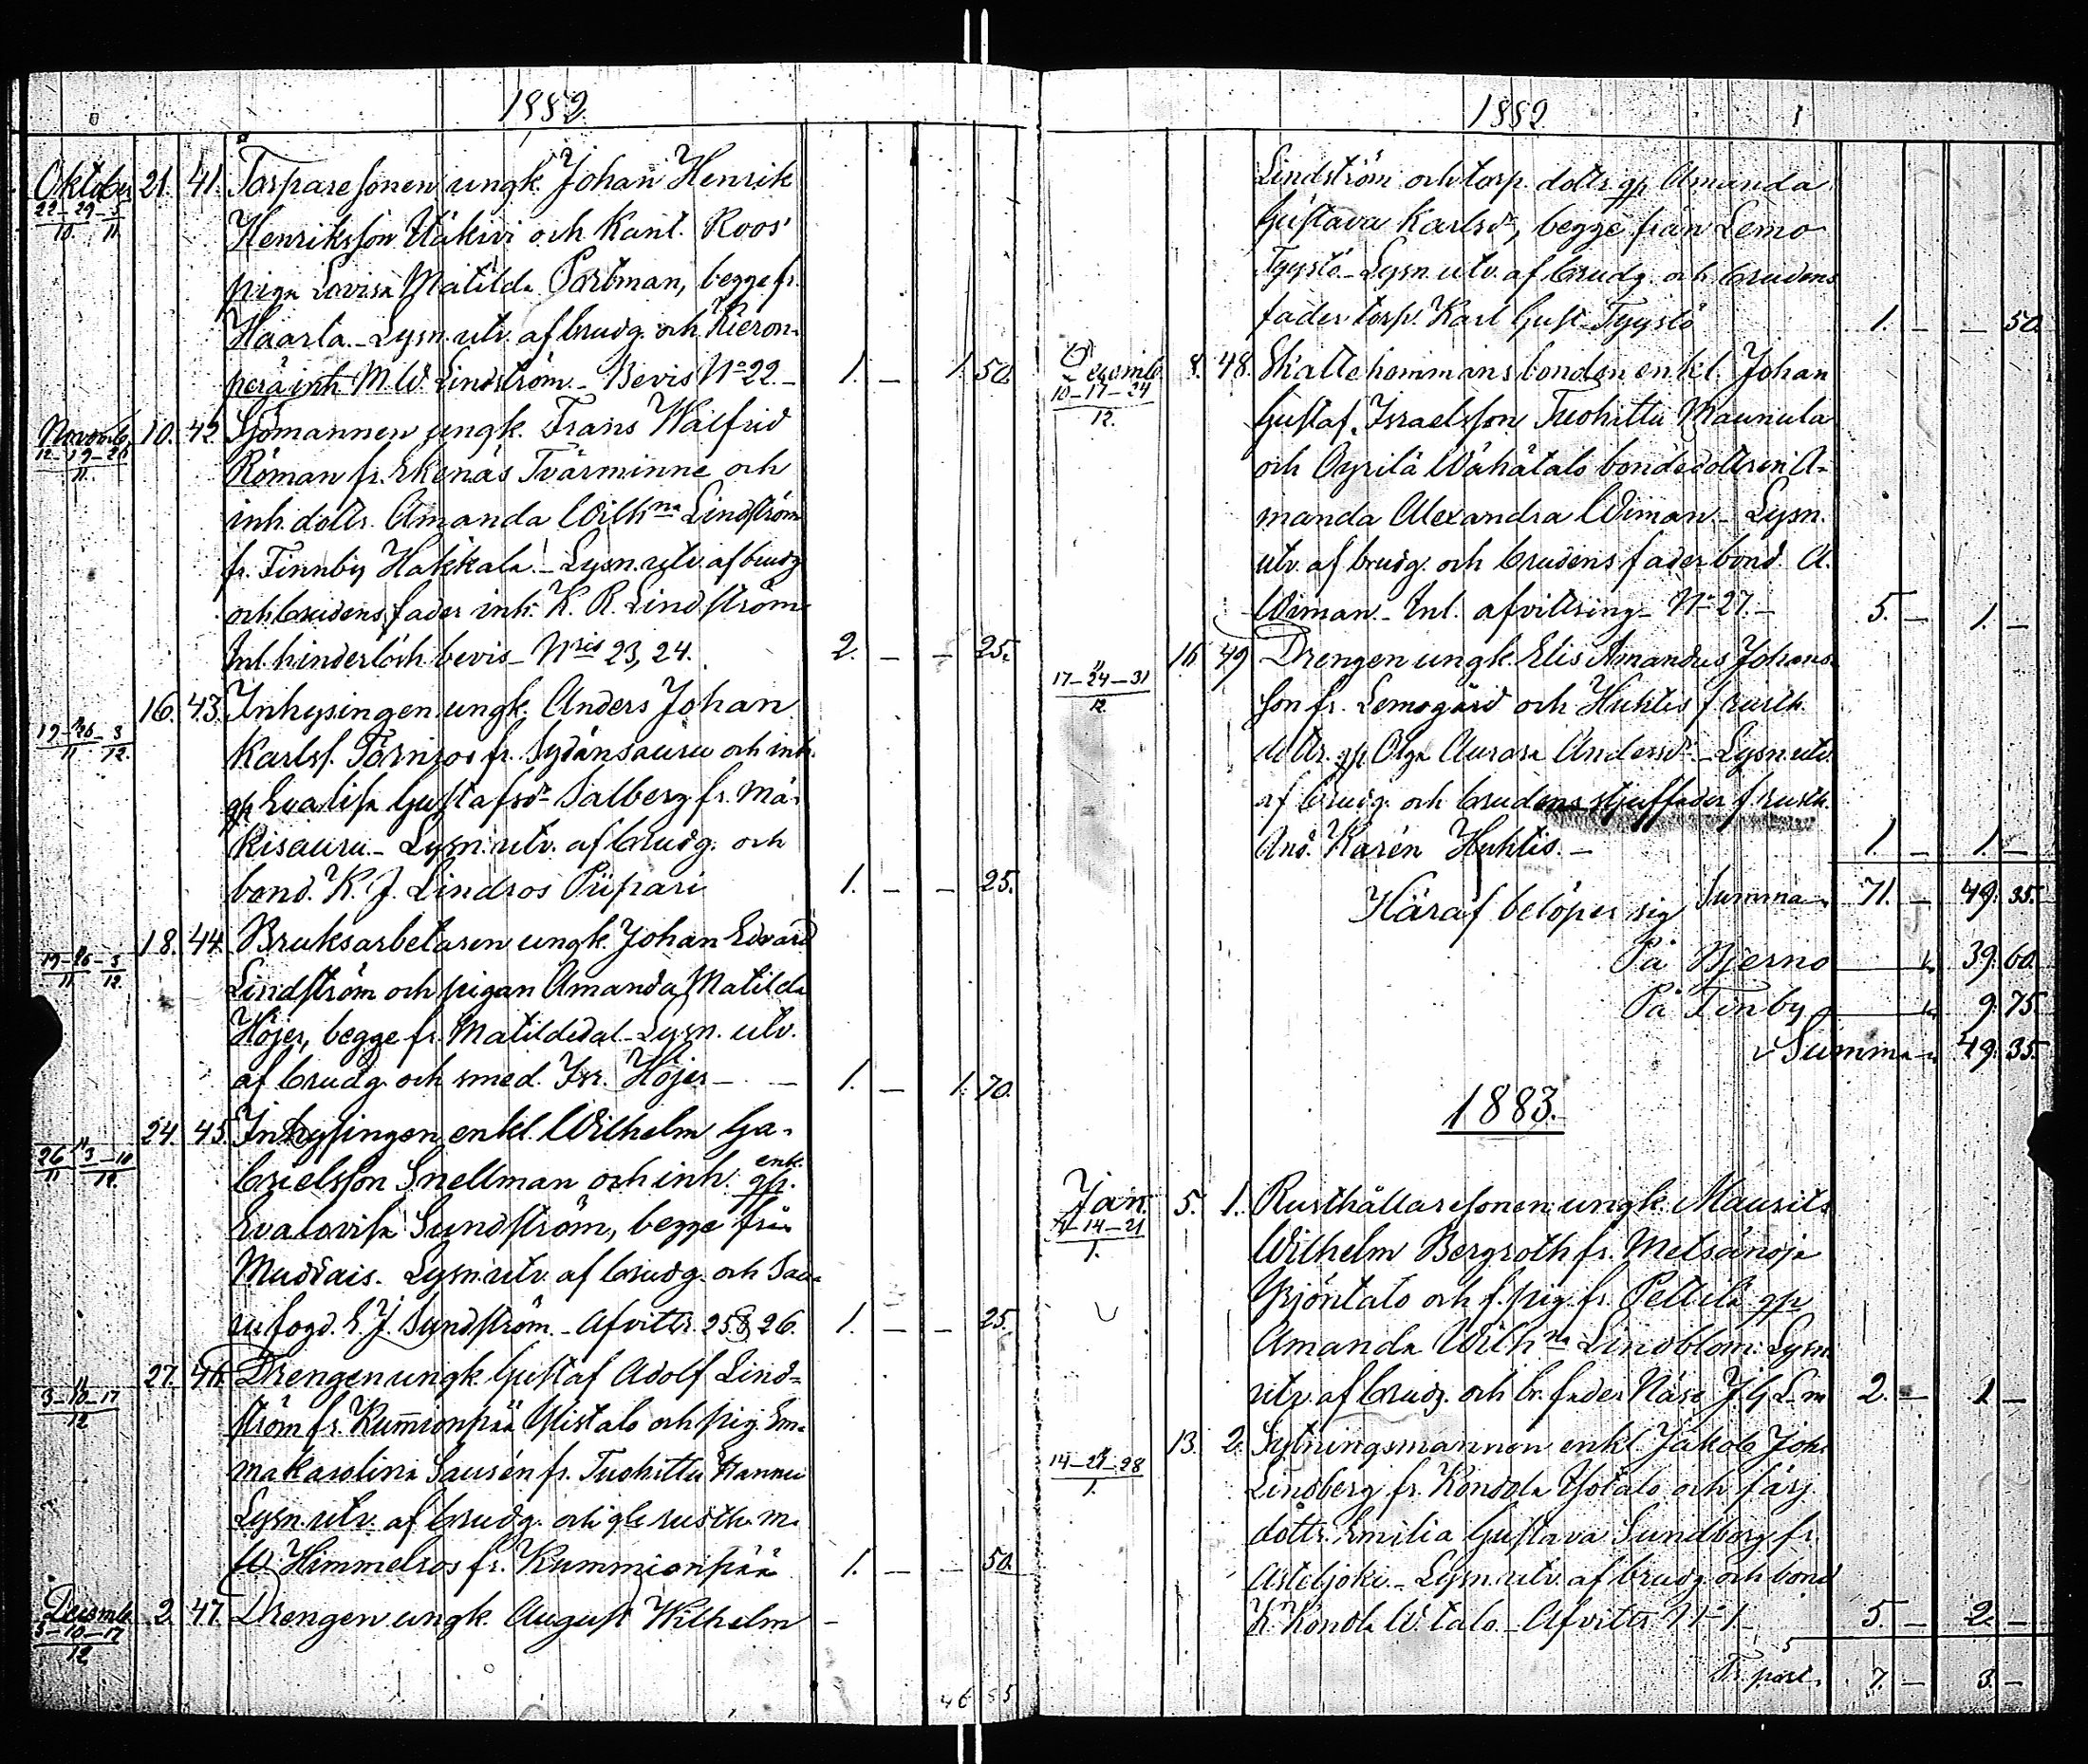 1882
Oktober 21. 41. Torparesonen ungk. Johan Henrik
22-29-5
10. 11
Henriksson Ylikivi och Kant. Roos'
piga Lovisa Matilda Portman, begge fr.
Haarla. Lysn. utv. af brudg. och Kieron-
perä inh M. W. Lindström. Bevis No 22. 1. — 1. 50.
Novemb. 10. 42. Sjömannen ungk. Frans Walfrid
12-19-26
11.
Röman fr. Ekenäs Tvärminne och
inh. dottr. Amanda Wilhna Lindström
fr. Finnby Hakkala. Lysn. utv. af brudg
och brudens fader inh. K. R. Lindström
Inl. hinderlösh. bevis Nris 23, 24. 2. — — 25.
" 16. 43. Inhysingen ungk. Anders Johan
19-26-3
11 12.
Karlss. Törnroos fr. Sydänsauru och inh.
gp Evalisa Gustafsdr Salberg fr. Mä-
kisauru. Lysn. utv. af brudg. och
bond. K. J. Lindros Piipari 1. — — 25.
18. 44. Bruksarbetaren ungk. Johan Edvard
19-26-3
11 12
Lindström och pigan Amanda Matilda
Höjer, begge fr. Matildedal. Lysn. utv.
af brudg. och smed. Isr. Höjer — 1. — 1. 70.
" 24. 45. Inhysingen enkl. Wilhelm Ga-
26 3-10
11 12
brielsson Snellman och inh. enk. gp.
Evalovisa Sundström, begge från
Muddais. Lysn. utv. af brudg. och Sau-
rufogd. E. J. Sundström. Afvittr. 25 & 26. 1. — — 25.
" 27. 46. Drengen ungk. Gustaf Adolf Lind-
3-10-17
12
ström fr. Kummionpää Ylistalo och pig. Em-
makarolina Sausén fr. Tuohittu Hannu
Lysn. utv. af brudg. och rusth. m.
Himmelros fr. Kummionpää 1. — — 50.
Decemb. 2. 47. Drengen ungk. August Wilhelm —
3-10-17
12
46 85
1882
Lindström och torp. dottr. gp Amanda
Gustava Karlsdr, begge från Lemo
Tyystö. Lysn. utv. af brudg. och brudens
fader torp. Karl Gust. Tyystö 1. — — 50.
Decemb. 8. 48. Skattehemmansbonden enkl. Johan
10-17-24
12.
Gustaf Israelsson Tuohittu Maunula
och Pyrilä Wähätalo bondedottren A-
manda Alexandra Wiman. Lysn.
utv. af brudg. och brudens fader bond. A.
Wiman. Inl. afvittring No 27. 5. — 1. —
" 16 49 Drengen ungk. Elis Amandus Johans-
17-24-31
12
son fr. Lemogård och Huhtis f rusth.
dottr. gp Olga Aurora Andersdr. Lysn. utv.
af brudg. och brudens styffader f rusth.
And. Karén Huhtis. 1. — 1. —
Summa 71. — 49. 35.
Häraf belöper sig
På Bjerno 39. 60.
På Finby 9. 75.
Summa 49. 35.
1883.
Jan. 5. 1. Rusthållaresonen ungk. Maurits
7-14-21
1.
Wilhelm Bergroth fr. Metsänoja
Yrjöntalo och f. pig. fr. Pettilä gp
Amanda Wilhna Lindblom. Lysn.
utv. af brudg. och br. fader Näse J. G. L-m 2. — 1 —
13. 2. Sytningsmannen enkl. Jakob Joh.
14-21-28
1.
Lindberg fr. Kondola Ysotalo och färj.
dottr. Emilia Gustava Sundborg fr.
Asteljoki. Lysn. utv. af brudg. och bond
K. Kondl. W. talo. Afvittr. No 1 5. — 2. —
Tr. port. 7. — 3. —